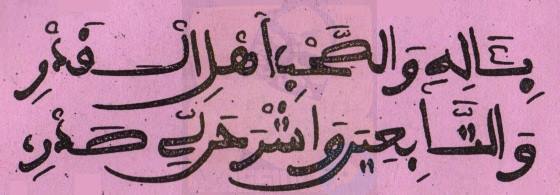 بِئَالِهِ وَالصَّحْبِ أَهْلِ الْقَدْرِ
وَالتَّابِعِينَ وَاشْرَحَنْ لِي صَدْرِي